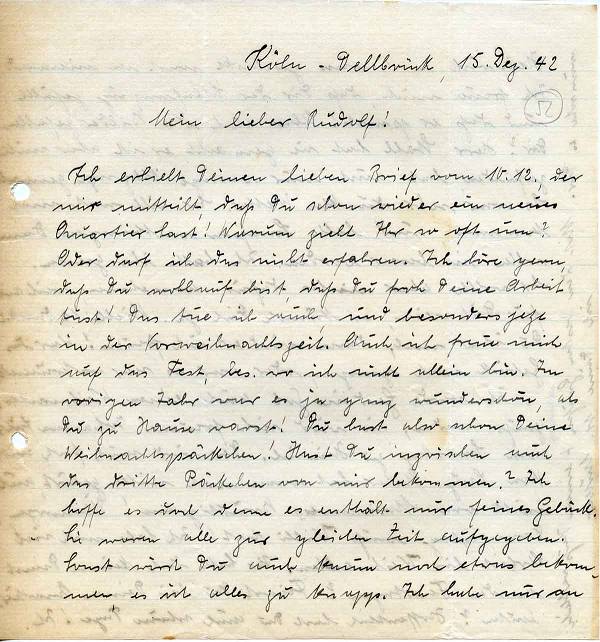 Köln-Dellbrück, 15. Dez. 42
Mein lieber Rudolf!
Ich erhielt Deinen lieben Brief vom 10.12., der
mir mitteilt, daß Du schon wieder ein neues
Quartier hast! Warum zieht Ihr so oft um?
Oder darf ich das nicht erfahren. Ich höre gern,
daß Du wohlauf bist, daß Du froh Deine Arbeit
tust! Das tue ich auch, und besonders jetzt
in der Vorweihnachtszeit. Auch ich freue mich
auf das Fest, bes. wo ich nicht allein bin. Im
vorigen Jahr war es ja ganz wunderschön, als
Du zu Hause warst! Du hast also schon Deine
Weihnachtspäckchen! Hast Du inzwischen auch
das dritte Päckchen von mir bekommen? Ich
hoffe es und denn es enthält nur feines Gebäck.
Sie waren alle zur gleichen Zeit aufgegeben.
Sonst wirst Du auch kaum noch etwas bekom-
men, es ist alles zu knapp. Ich habe nur an